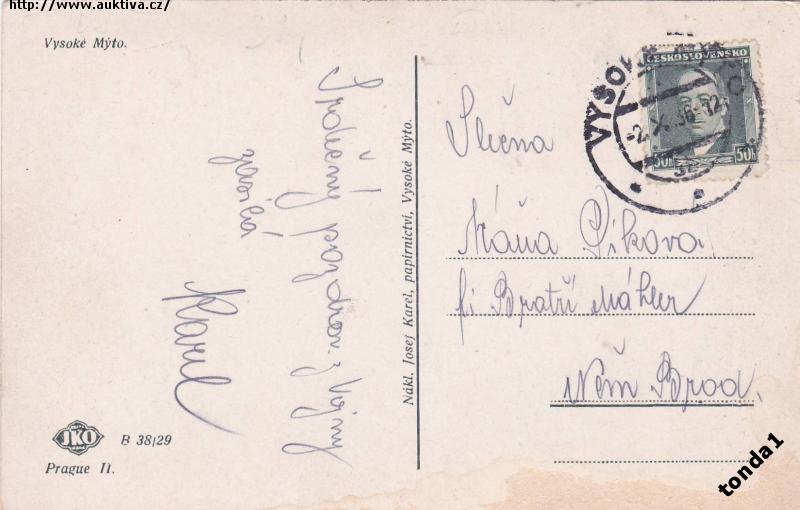 http://www.auktiva.cz/
Vysoké Mýto.
Srdečný pozdrav z Vojny
zasílá
Karel
Nákl. Josef Karel, papírnictví, Vysoké Mýto.
ČESKOSLOVENSKO
50h 50h
VYSOKÉ
-2.X.36-12
Slečna
Máňa Síkova
fi Bratří Máhler
Něm Brod.
JKO
B 38/29
Prague II.
tonda1